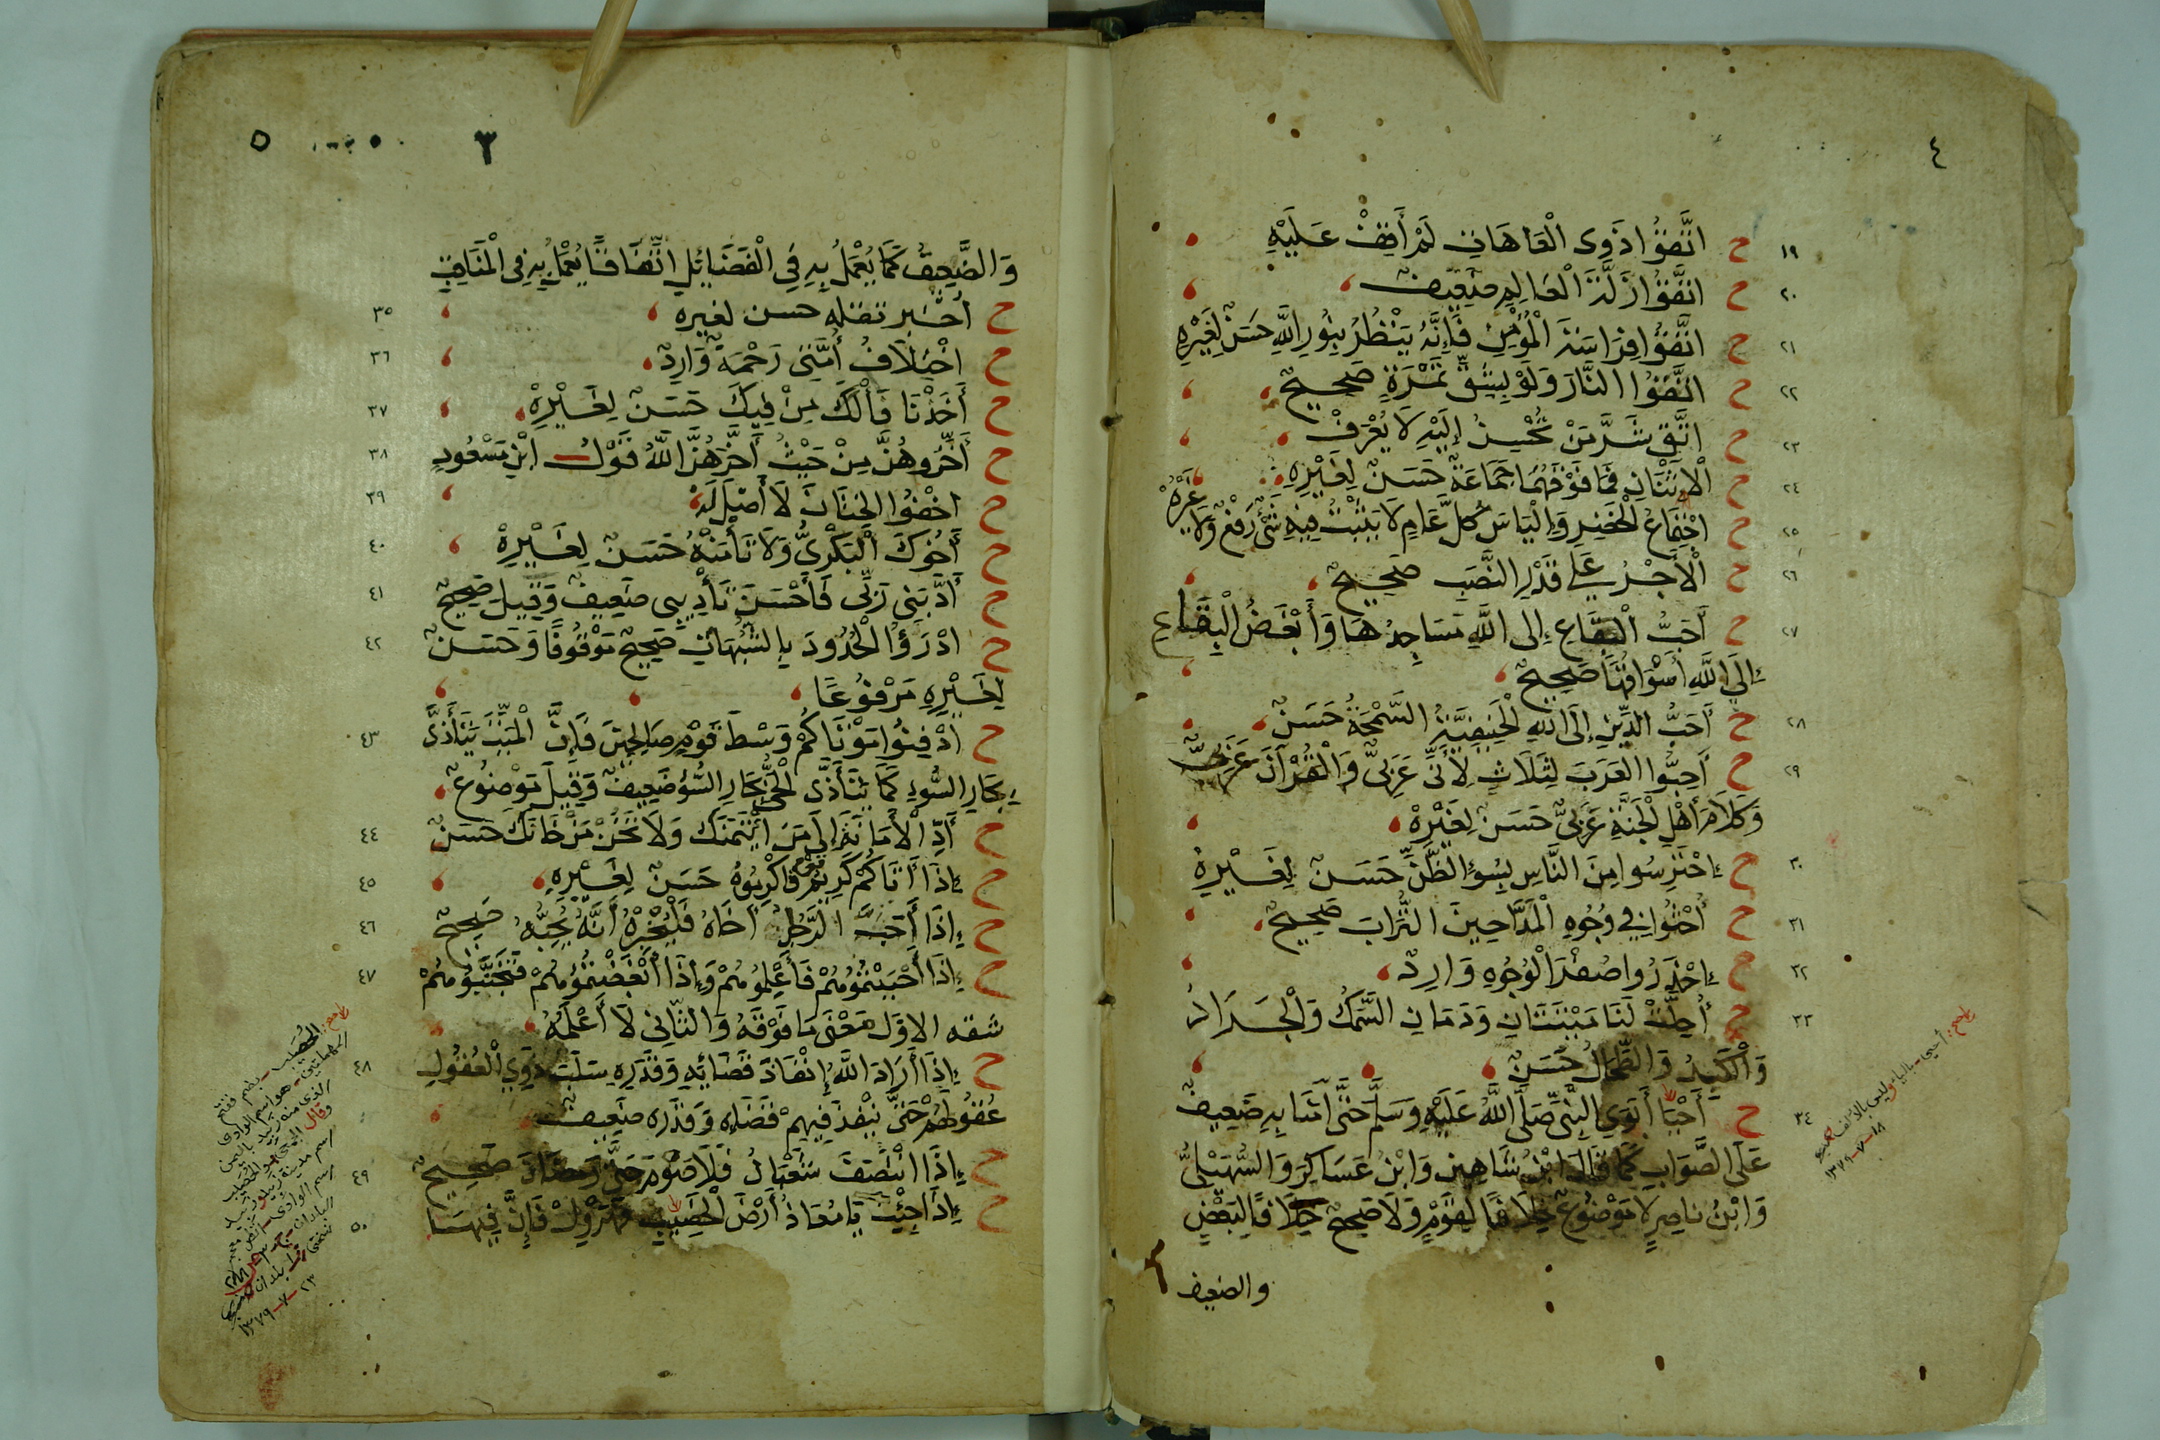 ٤
١٩ ح اتَّقُوا ذَوِى الْعَاهَاتِ لَمْ أَقِفْ عَلَيْهِ
٢٠ ح اتَّقُوا زَلَّةَ الْعَالِمِ ضَعِيفٌ
٢١ ح اتَّقُوا فِرَاسَةَ الْمُؤْمِنِ فَإِنَّهُ يَنْظُرُ بِنُورِ اللَّهِ حَسَنٌ لِغَيْرِهِ
٢٢ ح اتَّقُوا النَّارَ وَلَوْ بِشِقِّ تَمْرَةٍ صَحِيحٌ
٢٣ ح اتَّقِ شَرَّ مَنْ تُحْسِنُ إِلَيْهِ لَا يُعْرَفْ
٢٤ ح الْاِثْنَانِ فَمَا فَوْقَهُمَا جَمَاعَةٌ حَسَنٌ لِغَيْرِهِ
٢٥ ح اجْتِمَاعُ الْخَضِرِ وَإِلْيَاسَ كُلَّ عَامٍ لَا يَثْبُتُ فِيهِ شَىْءٌ رَفْعٌ وَلَا غَيْرُهُ
٢٦ ح الْأَجْرُ عَلَى قَدْرِ النَّصَبِ صَحِيحٌ
٢٧ ح أَحَبُّ الْبِقَاعِ إِلَى اللَّهِ مَسَاجِدُهَا وَأَبْغَضُ الْبِقَاعِ
إِلَى اللَّهِ أَسْوَاقُهَا صَحِيحٌ
٢٨ ح أَحَبُّ الدِّينِ إِلَى اللَّهِ الْحَنِيفِيَّةُ السَّمْحَةُ حَسَنٌ
٢٩ ح أَحِبُّوا الْعَرَبَ لِثَلَاثٍ لِأَنِّى عَرَبِىٌّ وَالْقُرْآنَ عَرَبِىٌّ
وَكَلَامَ أَهْلِ الْجَنَّةِ عَرَبِىٌّ حَسَنٌ لِغَيْرِهِ
٣٠ ح اِحْتَرِسُوا مِنَ النَّاسِ بِسُوءِ الظَّنِّ حَسَنٌ لِغَيْرِهِ
٣١ ح اُحْثُوا فِي وُجُوهِ الْمَدَّاحِينَ التُّرَابَ صَحِيحٌ
٣٢ ح اِحْذَرُوا صُفْرَ الْوُجُوهِ وَارِدٌ
٣٣ ح أُحِلَّتْ لَنَا مَيْتَتَانِ وَدَمَانِ السَّمَكُ وَالْجَرَادُ
وَالْكَبِدُ وَالطِّحَالُ حَسَنٌ
٣٤ ح أَحْيَا أَبَوَىِ النَّبِىِّ صَلَّى اللَّهُ عَلَيْهِ وَسَلَّمَ حَتَّى آمَنَا بِهِ ضَعِيفٌ
عَلَى الصَّوَابِ كَمَا قَالَهُ ابْنُ شَاهِينَ وَابْنُ عَسَاكِرَ وَالسُّهَيْلِىُّ
وَابْنُ نَاصِرٍ لَا مَوْضُوعٌ خِلَافًا لِقَوْمٍ وَلَا صَحِيحٌ خِلَافًا لِبَعْضٍ
والضعيف
صح: أحيى - بالياء وليس بالألف
١٨-٧-١٣٧٩
٣
٥
وَالضَّعِيفُ كَمَا يُعْمَلُ بِهِ فِي الْفَضَائِلِ اتِّفَاقًا يُعْمَلُ بِهِ فِى الْمَنَاقِبِ
٣٥ ح أُخْبُر تقله حسن لغيره
٣٦ ح اخْتِلَافُ أُمَّتِى رَحْمَةٌ وَارِدٌ
٣٧ ح أَخَذْنَا فَأْلَكَ مِنْ فِيكَ حَسَنٌ لِغَيْرِهِ
٣٨ ح أَخِّرُوهُنَّ مِنْ حَيْثُ أَخَّرَهُنَّ اللَّهُ قَوْلُ ابْنِ مَسْعُودٍ
٣٩ ح اخْفُوا الْخِتَانَ لَا أَصْلَ لَهُ
٤٠ ح أَخُوكَ الْبَكْرِىُّ وَلَا تَأْمَنْهُ حَسَنٌ لِغَيْرِهِ
٤١ ح أَدَّبَنِى رَبِّى فَأَحْسَنَ تَأْدِيبِى ضَعِيفٌ وَقِيلَ صَحِيحٌ
٤٢ ح ادْرَؤُا الْحُدُودَ بِالشُّبُهَاتِ صَحِيحٌ مَوْقُوفًا وَحَسَنٌ
لِغَيْرِهِ مَرْفُوعًا
٤٣ ح ادْفِنُوا مَوْتَاكُمْ وَسْطَ قَوْمٍ صَالِحِينَ فَإِنَّ الْمَيِّتَ يَتَأَذَّى
بِجَارِ السُّوءِ كَمَا يَتَأَذَّى الْحَىُّ بِجَارِ السُّوءِ ضَعِيفٌ وَقِيلَ مَوْضُوعٌ
٤٤ ح أَدِّ الْأَمَانَةَ إِلَى مَنِ ائْتَمَنَكَ وَلَا تَخُنْ مَنْ خَانَكَ حَسَنٌ
٤٥ ح إِذَا أَتَاكُمْ كَرِيمُ قَوْمٍ فَأَكْرِمُوهُ حَسَنٌ لِغَيْرِهِ
٤٦ ح إِذَا أَحَبَّ الرَّجُلُ أَخَاهُ فَلْيُخْبِرْهُ أَنَّهُ يُحِبُّهُ صَحِيحٌ
٤٧ ح إِذَا أَحْبَبْتُمُوُهُمْ فَأَعْلِمُوهُمْ وَإِذَا أَبْغَضْتُمُوُهُمْ فَتَجَنَّبُوهُمْ
شقه الاوّل مَعْنَى مَا فَوْقَهُ وَالثَّانِى لَا أَعْلَمُهُ
٤٨ ح إِذَا أَرَادَ اللَّهُ إِنْفَاذَ قَضَائِهِ وَقَدَرِهِ سَلَبَ ذَوِي الْعُقُولِ
عُقُولَهُمْ حَتَّى يَنْفُذَ فِيهِمْ قَضَاءُهُ وَقَدَرُهُ ضَعِيفٌ
٤٩ ح إِذَا انْتَصَفَ شَعْبَانُ فَلَا صَوْمَ حَتَّى رَمَضَانَ صَحِيحٌ
٥٠ ح إِذَا جِئْتَ يَا مُعَاذُ أَرْضَ الْحُصَيْبِ فَهَرْوِلْ فَإِنَّ فِيهَا
صح: الحُصَيب - بضم ففتح
هو اسم الوادى
الذى منه زبيد باليمن
وقال
٢٣-٧-١٣٧٩